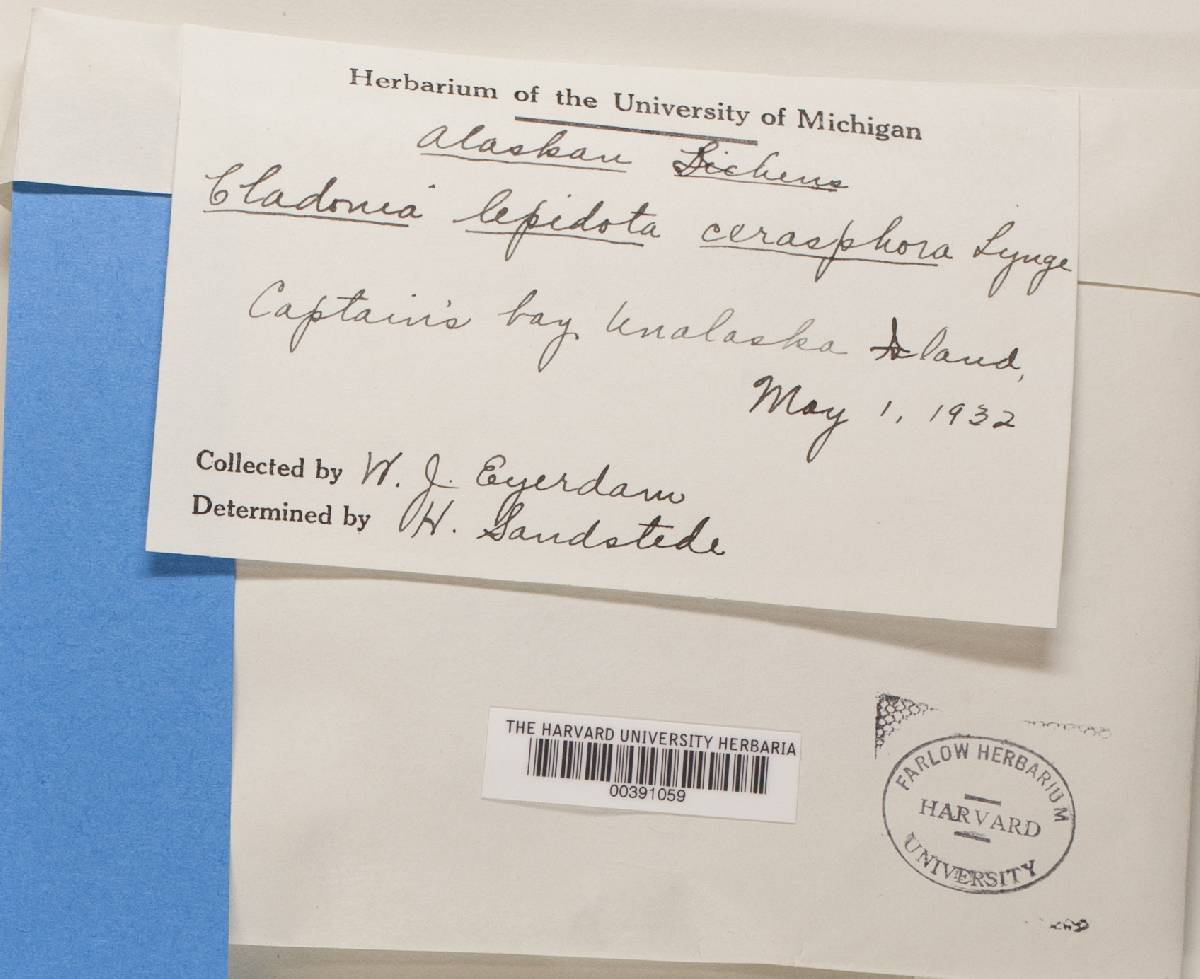 Herbarium of the University of Michigan
Alaskan Lichens
Cladonia lepidota cerasphora Lynge
Captain's bay Unalaska Island,
May 1, 1932
Collected by W. J. Eyerdam
Determined by H. Sandstede
THE HARVARD UNIVERSITY HERBARIA
00391059
FARLOW HERBARIUM
HARVARD
UNIVERSITY